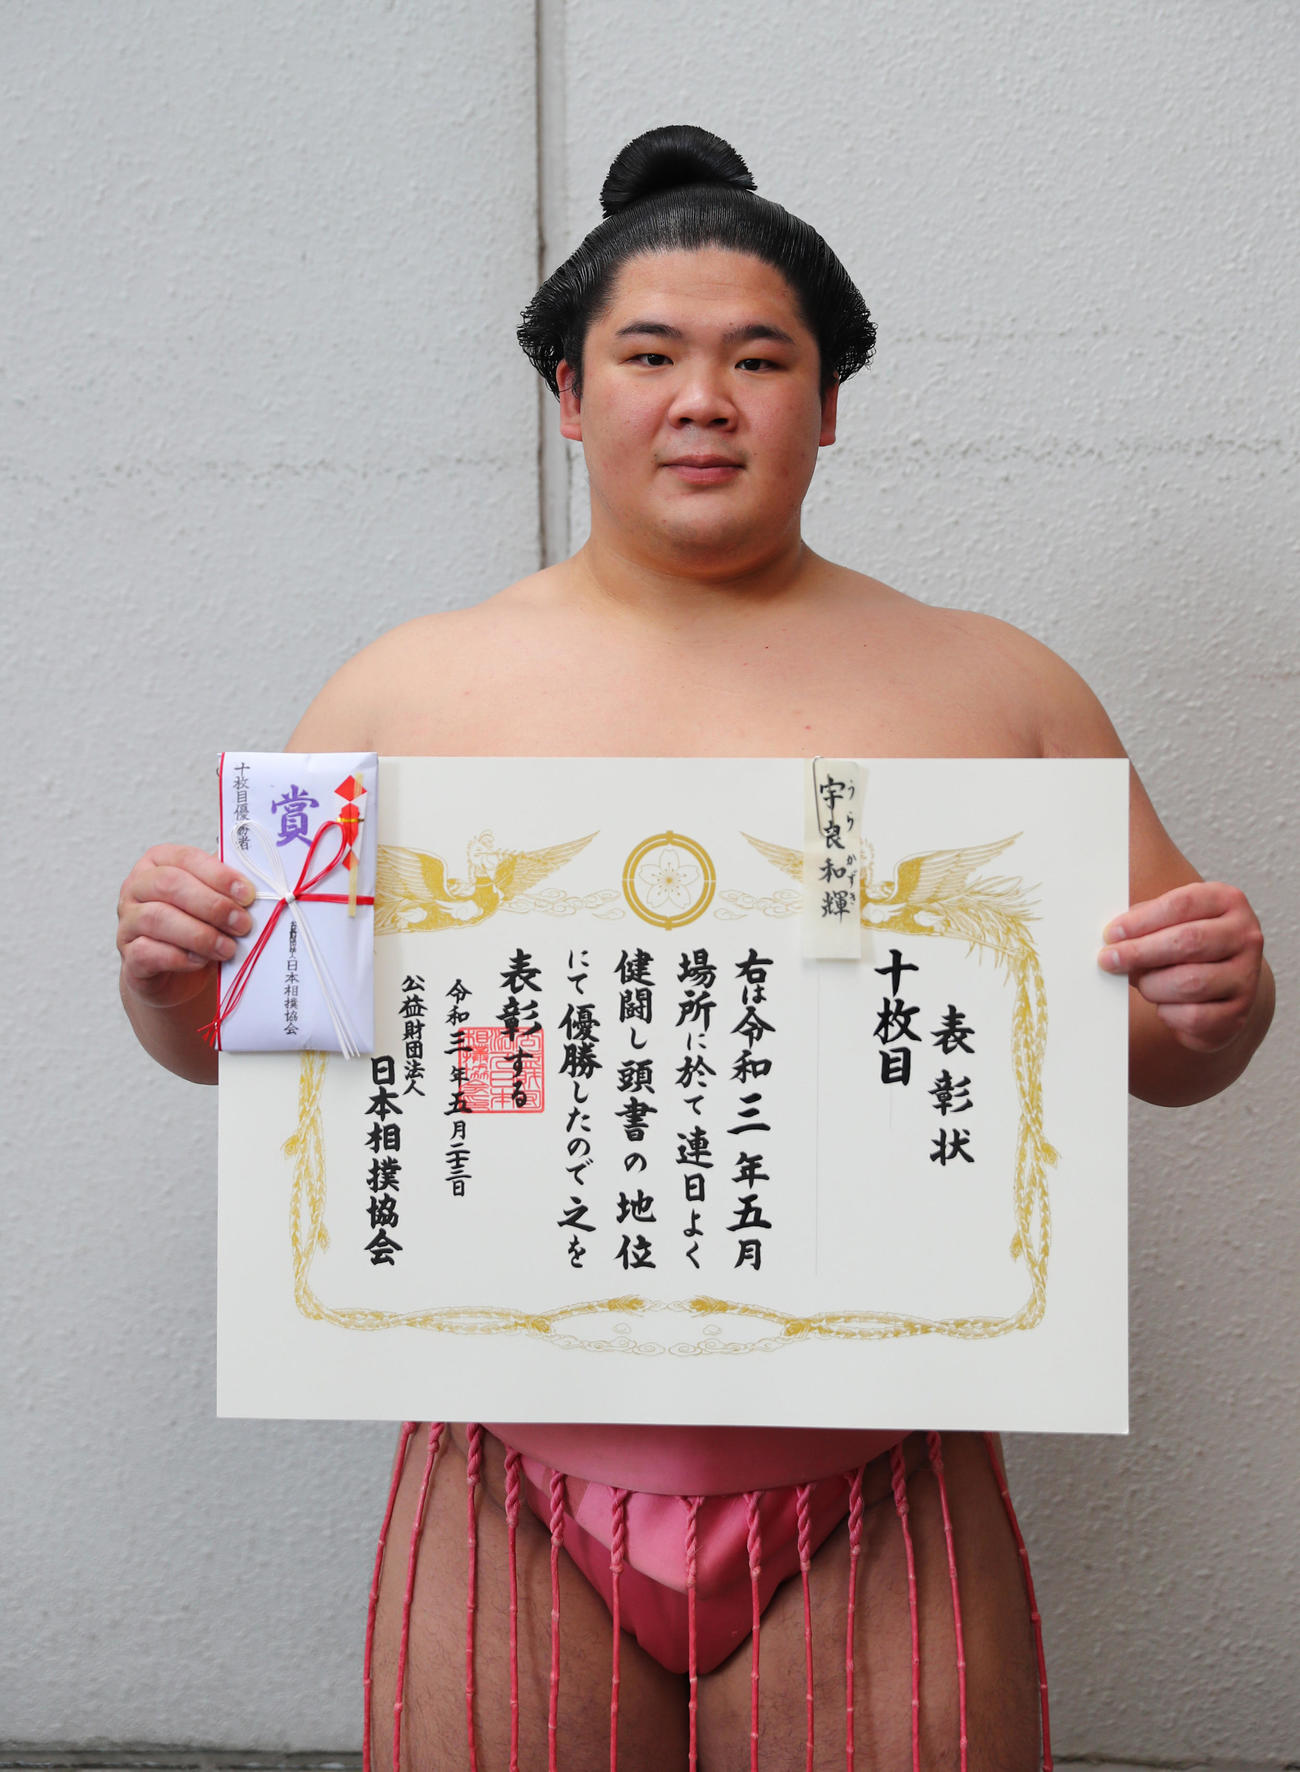 表彰状
十枚目
宇良和輝
うら かずき
右は令和三年五月
場所に於て連日よく
健闘し頭書の地位
にて優勝したので之を
表彰する
令和三年五月二十三日
公益財団法人
日本相撲協会
賞
十枚目優勝者
日本相撲協会